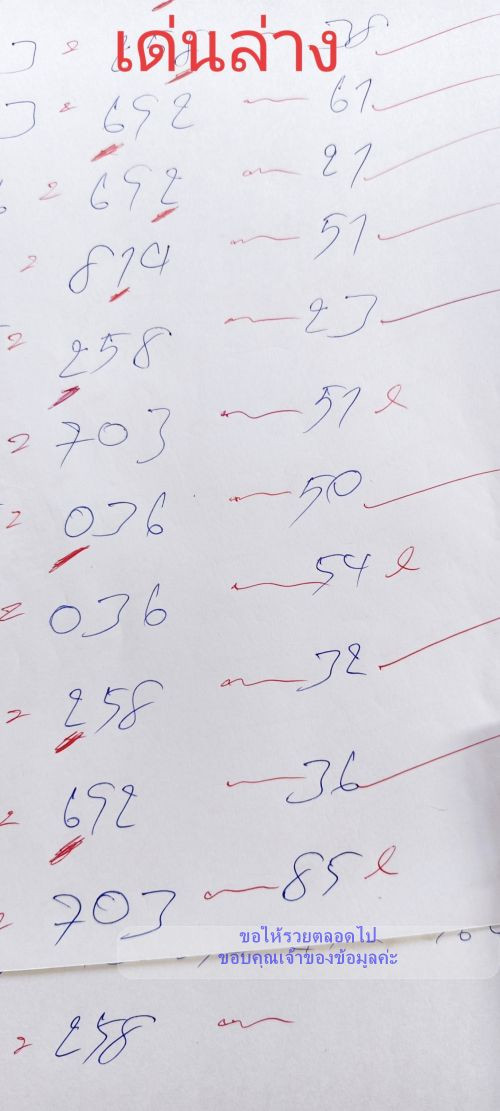 เด่นล่าง
258 38
692 61
692 21
814 51
258 23
703 51
036 50
036 54
258 32
692 36
703 85
ขอให้รวยตลอดไป
ขอบคุณเจ้าของข้อมูลค่ะ
258